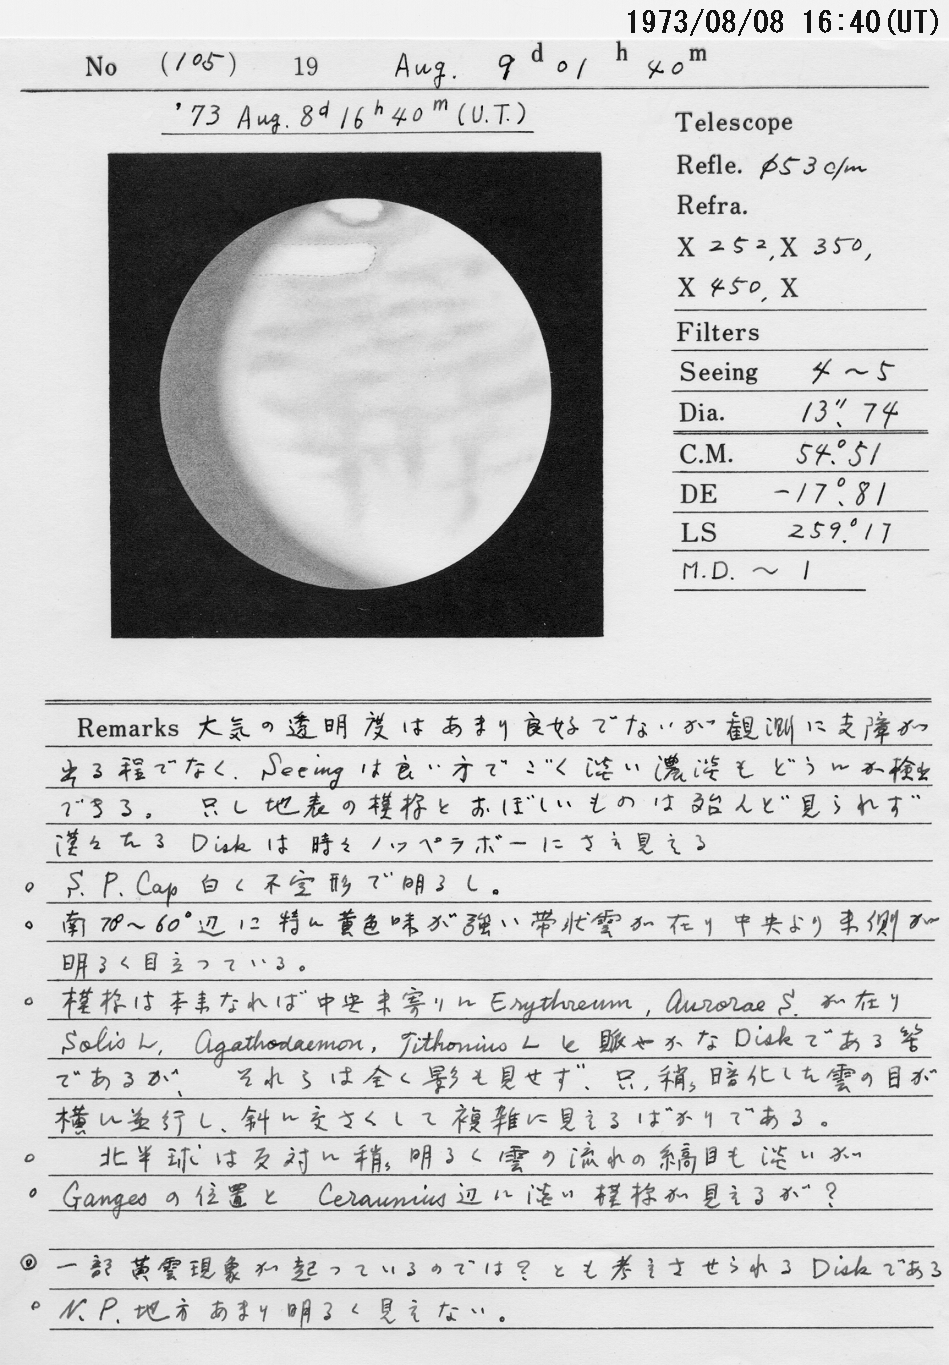 1973/08/08 16:40(UT)
No (105) 19 Aug. 9d 01h 40m
'73 Aug. 8d 16h 40m (U.T.)
Telescope
Refle. φ53 c/m
Refra.
X 252, X 350,
X 450, X
Filters
Seeing 4～5
Dia. 13".74
C.M. 54°.51
DE -17°.81
LS 259°.17
M.D. ～ 1
Remarks 大気の透明度はあまり良好でないが観測に支障が
出る程でなく. Seeingは良い方でごく淡い濃淡もどうにか検出
できる。 只し地表の模様とおぼしいものは殆んど見られず
漠々たる Disk は時々ノッペラボーにさえ見える
○ S. P. Cap 白く不定形で明るし。
○ 南70°～60°辺に特に黄色味が強い帯状雲が在り中央より東側が
明るく目立っている。
○ 模様は本来なれば中央東寄りに Erythreum, Aurorae S. が在り
Solis L, Agathodaemon, Tithonius L と賑やかな Disk である筈
であるが、 それらは全く影も見せず、只、稍々暗化した雲の目が
横に並行し、斜に交さくして複雑に見えるばかりである。
○ 北半球は反対に稍々明るく雲の流れの縞目も淡いが
○ Ganges の位置と Ceraunius 辺に淡い模様が見えるが?
◎ 一部黄雲現象が起っているのでは? とも考えさせられる Disk である
○ N.P. 地方あまり明るく見えない。